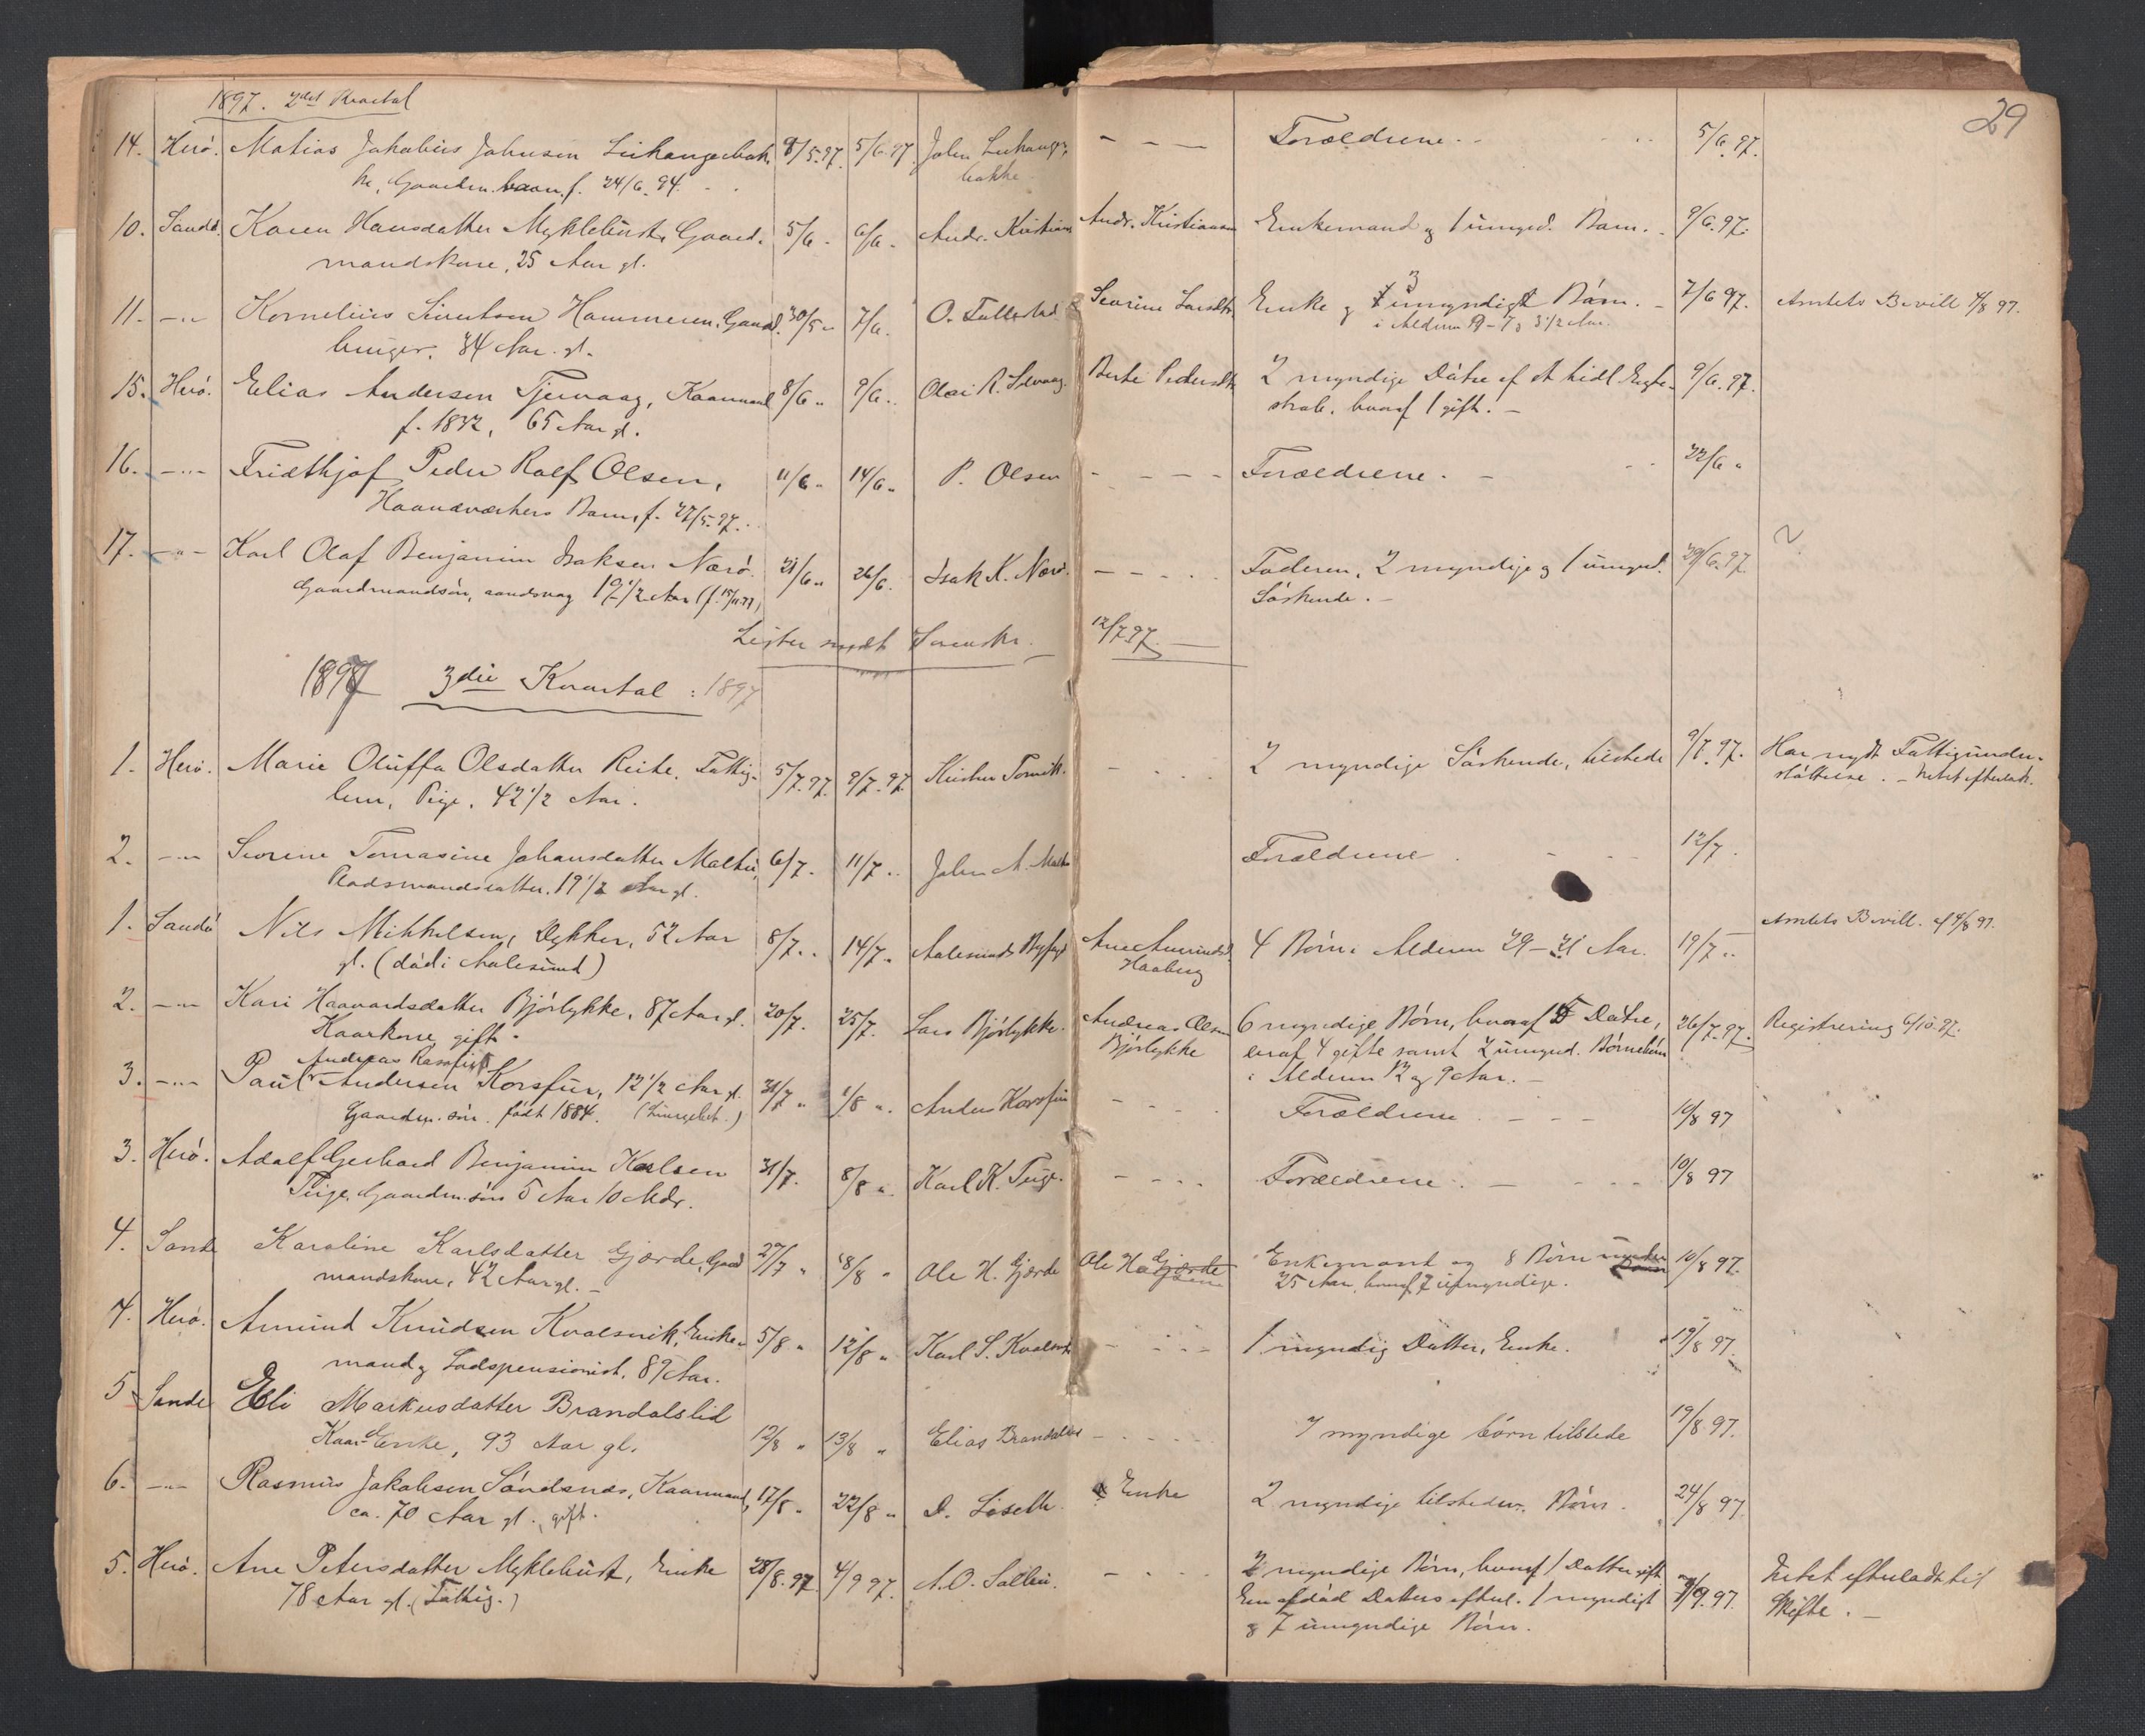 29
1897. 2det Kvartal
14. Herö. Matias Jakobius Johnsen Leikangerbak- 8/5.97. 5/6.97. John Leikanger- — — — Forældrene. 5/6.97.
ke, Gaardm.barn, f. 24/6.94. bakke
10. Sandö. Karen Hansdatter Myklebust, Gaard- 5/6 6/6 Andr. Kristians Andr. Kristiansen Enkemand og 1 umynd. Barn. 9/6.97.
mandskone, 25 Aar gl.
11. —„— Kornelius Sivertsen Hammeren, Gaard- 30/5 7/6. O. Tullestad Severine Larsdtr. Enke og 3 umyndige Börn. 7/6 97. Amtets Bevill 4/8 97.
bruger. 34 Aar gl. i Alderen 9 - 7 og 3 1/2 Aar.
15. Herö. Elias Andersen Tjervaag, Kaarmand 8/6 „ 9/6 „ Olai R. Berte Pedersdtr 2 myndige Dötre af et tidl. Ægte- 9/6.97.
f. 1832, 65 Aar gl. skab, hvoraf 1 gift. —
16. —„— Fridthjof Peder Rolf Olsen, 11/6 „ 14/6 „ P. Olsen — — — — Forældrene. — 22/6 „
Haandværkers Barn, f. 27/5.97.
17. —„— Karl Olaf Benjamin Isaksen Nærö 21/6 „ 26/6. Isak K. Nærö. — — — Faderen, 2 myndige og 1 umynd. 29/6.97.
Gaardmandsön, aandsvag 19 1/2 Aar (f. 15/11.77) Söskende. —
Lister sendt Sorenskr. 12/7 97.
1897 3die Kvartal : 1897
1. Herö. Marie Oluffa Olsdatter Reite, Fattig- 5/7.97. 9/7.97. Kristen — 2 myndige Söskende, tilstede 9/7.97. Har nydt Fattigunder-
lem, Pige, 42 1/2 Aar. stöttelse. — Intet efterladt.
2. —„— Severine Tomasine Johansdatter Moltu, 6/7. 11/7 „ Johan A. Moltu Forældrene. 12/7.
Pladsmandsdatter. 19 1/2 Aar gl.
1. Sandö Nils Mikkelsen, Dykker, 52 Aar 8/7 „ 14/7 „ Aalesunds Byfogd Ane Amundsd. 4 Börn i Alderen 29 — 21 Aar. 19/7 „ Amtets Bevill. af 4/8 97.
gl. (död i Aalesund) Haaberg
2. —„— Kari Haavardsdatter Bjørlykke, 87 Aar gl. 20/7. 25/7. Lars Bjørlykke. Andreas Olsen 6 myndige Börn, hvoraf 5 Dötre, 26/7.97. Registrering 6/10.97.
Kaarkone, gift. Bjørlykke heraf 4 gifte samt 2 umynd. Börnebörn
i Alderen 12 og 9 Aar. —
Andreas
3. —„— Paul Andersen Korsfur, 12 1/2 Aar gl. 31/7 „ 1/8 „ Anders Korsfur — — — Forældrene — — — 10/8 97
Gaardm. sön. født 1884.
3. Herö. Adolf Gerhard Benjamin Karlsen 31/7. 8/8 „ Karl K. — — — — Forældrene. — — 10/8 97
Gaardm. sön 5 Aar 10 Mdr.
4. Sande Karoline Karlsdatter Gjærde, Gaard 27/7 „ 8/8 „ Ole H. Gjærde Ole H. Gjærde Enkemand og 8 Börn under 10/8 97.
mandskone, 42 Aar gl. — 25 Aar, hvoraf 7 umyndige.
4. Herö. Amund Knudsen Kvalsvik, Enke- 5/8 „ 12/8 „ Karl S. Kvalsvik — — — 1 myndig Datter, Enke. 19/8 97.
mand og Lodspensionist. 89 Aar.
5 Sande Eli Markusdatter Brandalslid 12/8 „ 13/8 „ Elias Brandalslid — — — — 7 myndige börn tilstede 19/8 97.
Kaar Enke, 93 Aar gl.
6. —„— Rasmus Jakobsen Söndsnæs, Kaarmand, 17/8 „ 22/8 „ D. Liseth. Enke 2 myndige tilsted. Börn. 24/8 97
ca. 70 Aar gl., gift.
5. Herö. Ane Petersdatter Myklebust, Enke 28/8.97 4/9 97. A. O. — — — 2 myndige Börn, hvoraf 1 Datter gift 7/9.97. Intet efterladt til
78 Aar gl. (Fattig.) En afdöd Datters efterl. 1 myndigt Skifte. —
og 7 umyndige Börn.